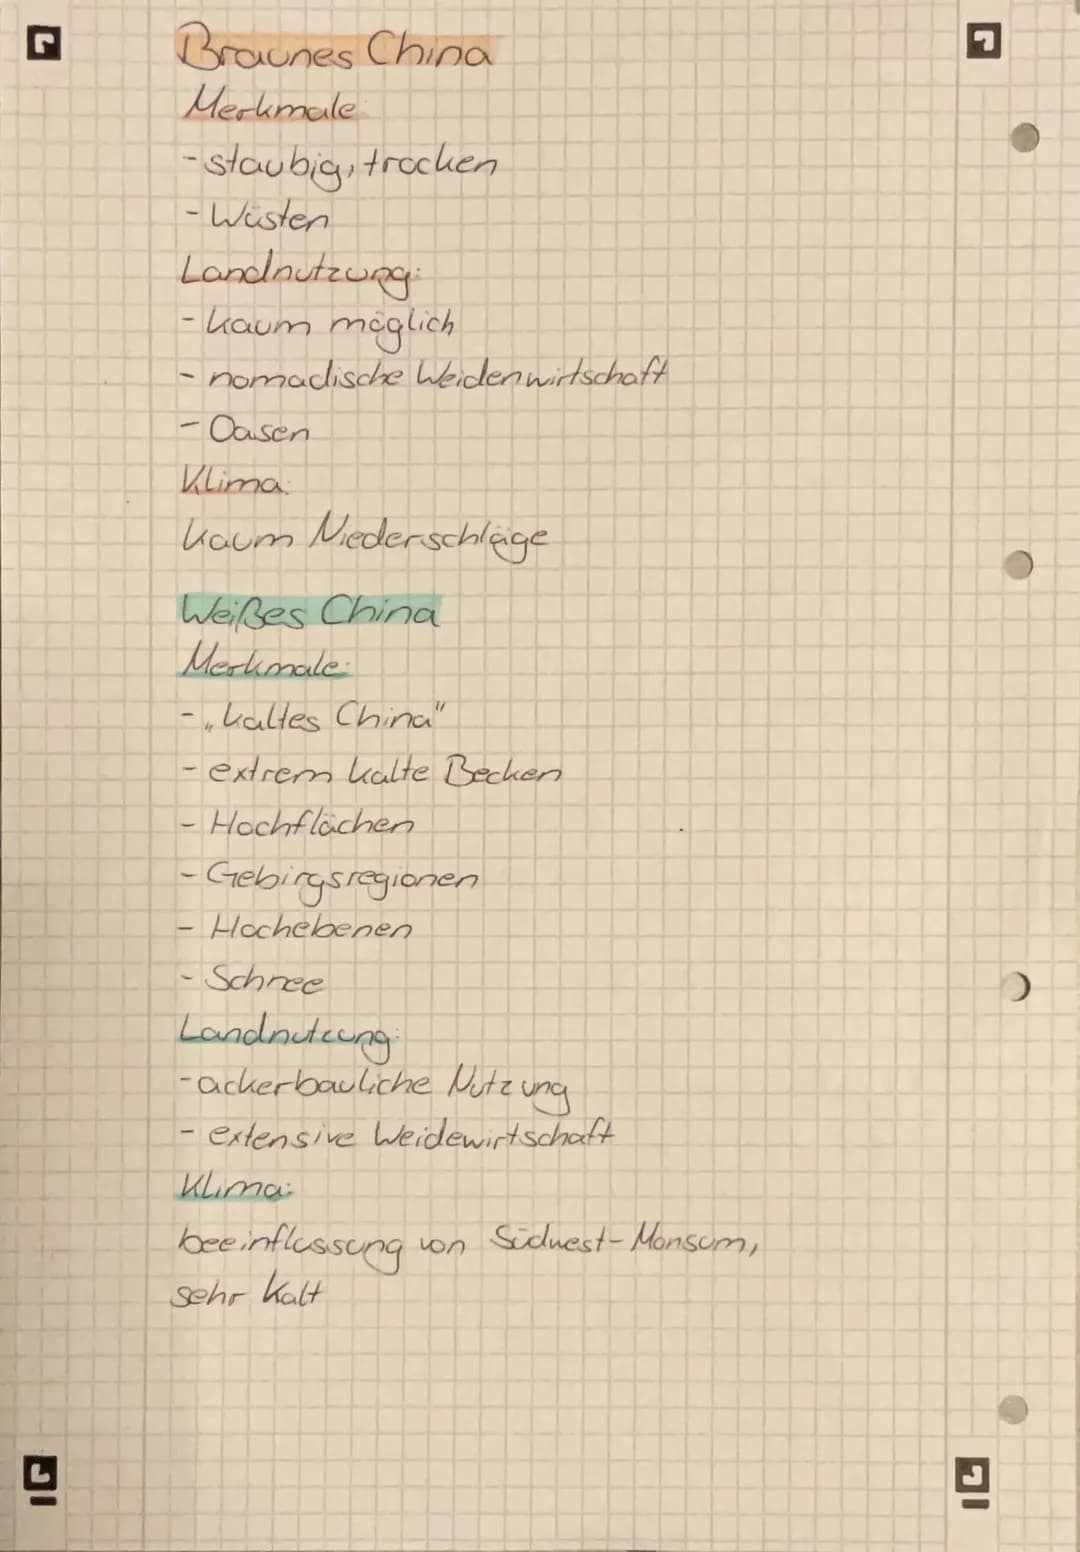 Braunes China
Merkmale:
- staubig, trocken
- Wüsten
Landnutzung:
- kaum möglich
- nomadische Weidenwirtschaft
- Oasen
Klima:
kaum Niederschläge
Weißes China
Merkmale:
- „kaltes China"
- extrem kalte Becken
- Hochflächen
- Gebirgsregionen
- Hochebenen
- Schnee
Landnutzung:
- ackerbauliche Nutzung
- extensive Weidewirtschaft
Klima:
beeinflussung von Südwest-Monsum,
sehr kalt